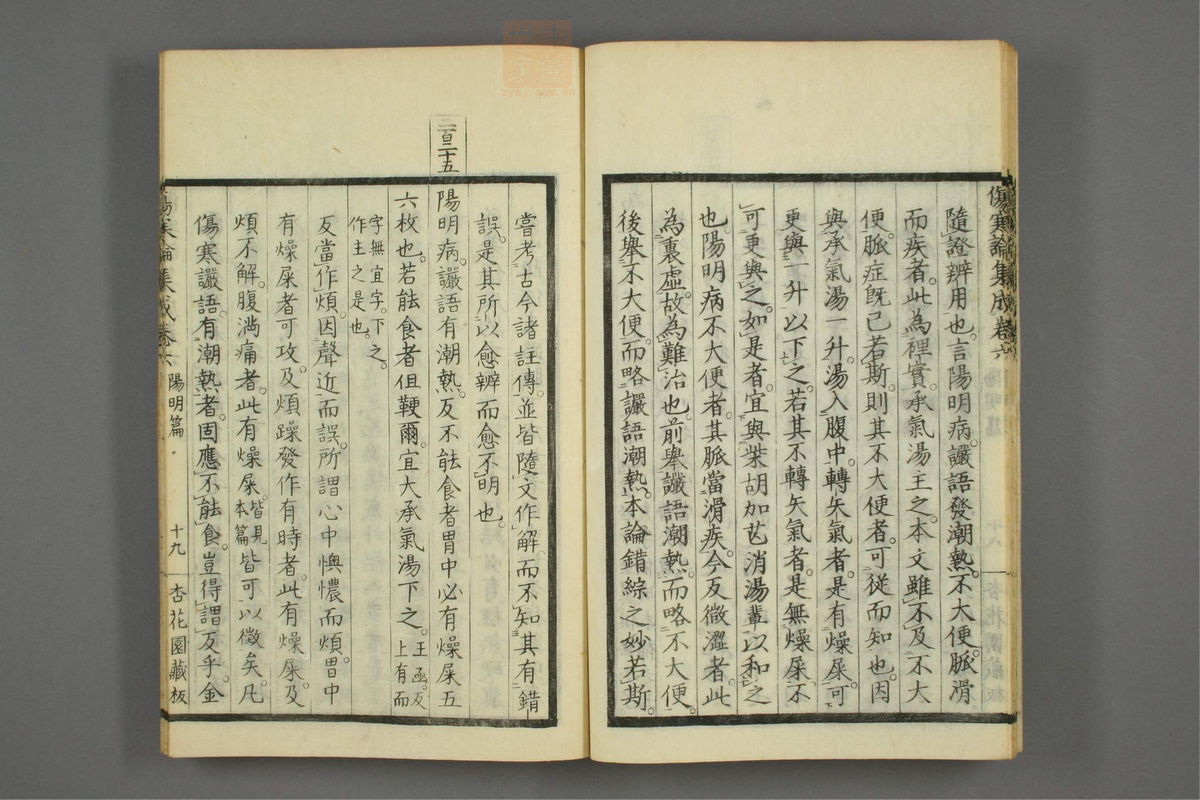 傷寒論集成卷六
隨證辨用也。言陽明病。讝語發潮熱。不大便。脈滑
而疾者。此為裡實。承氣湯主之。本文雖不及不大
便。脈症既已若斯。則其不大便者。可從而知也。因
與承氣湯一升。湯入腹中。轉矢氣者。是有燥屎。可
更與一升以下之。若其不轉矢氣者。是無燥屎。不
可更與之。如是者。宜與柴胡加芒消湯輩以和之
也。陽明病不大便者。其脈當滑疾。今反微澀者。此
為裏虛。故為難治也。前舉讝語潮熱。而略不大便。
後舉不大便。而略讝語潮熱。本論錯綜之妙若斯。
嘗考古今諸註傳。並皆隨文作解。而不知其有錯
誤。是其所以愈辨而愈不明也。
二百二十五
陽明病。讝語有潮熱。反不能食者。胃中必有燥屎五
六枚也。若能食者但鞕爾。宜大承氣湯下之。王函。反上有而
字。無宜字。下之。作主之是也。
反當作煩。因聲近而誤。所謂心中懊憹而煩。胃中
有燥屎者可攻。及煩躁發作有時者。此有燥屎。及
煩不解。腹滿痛者。此有燥屎。皆見本篇皆可以徵矣。凡
傷寒讝語。有潮熱者。固應不能食。豈得謂反乎。金
傷寒論集成卷六
陽明篇
十九
杏花園藏板